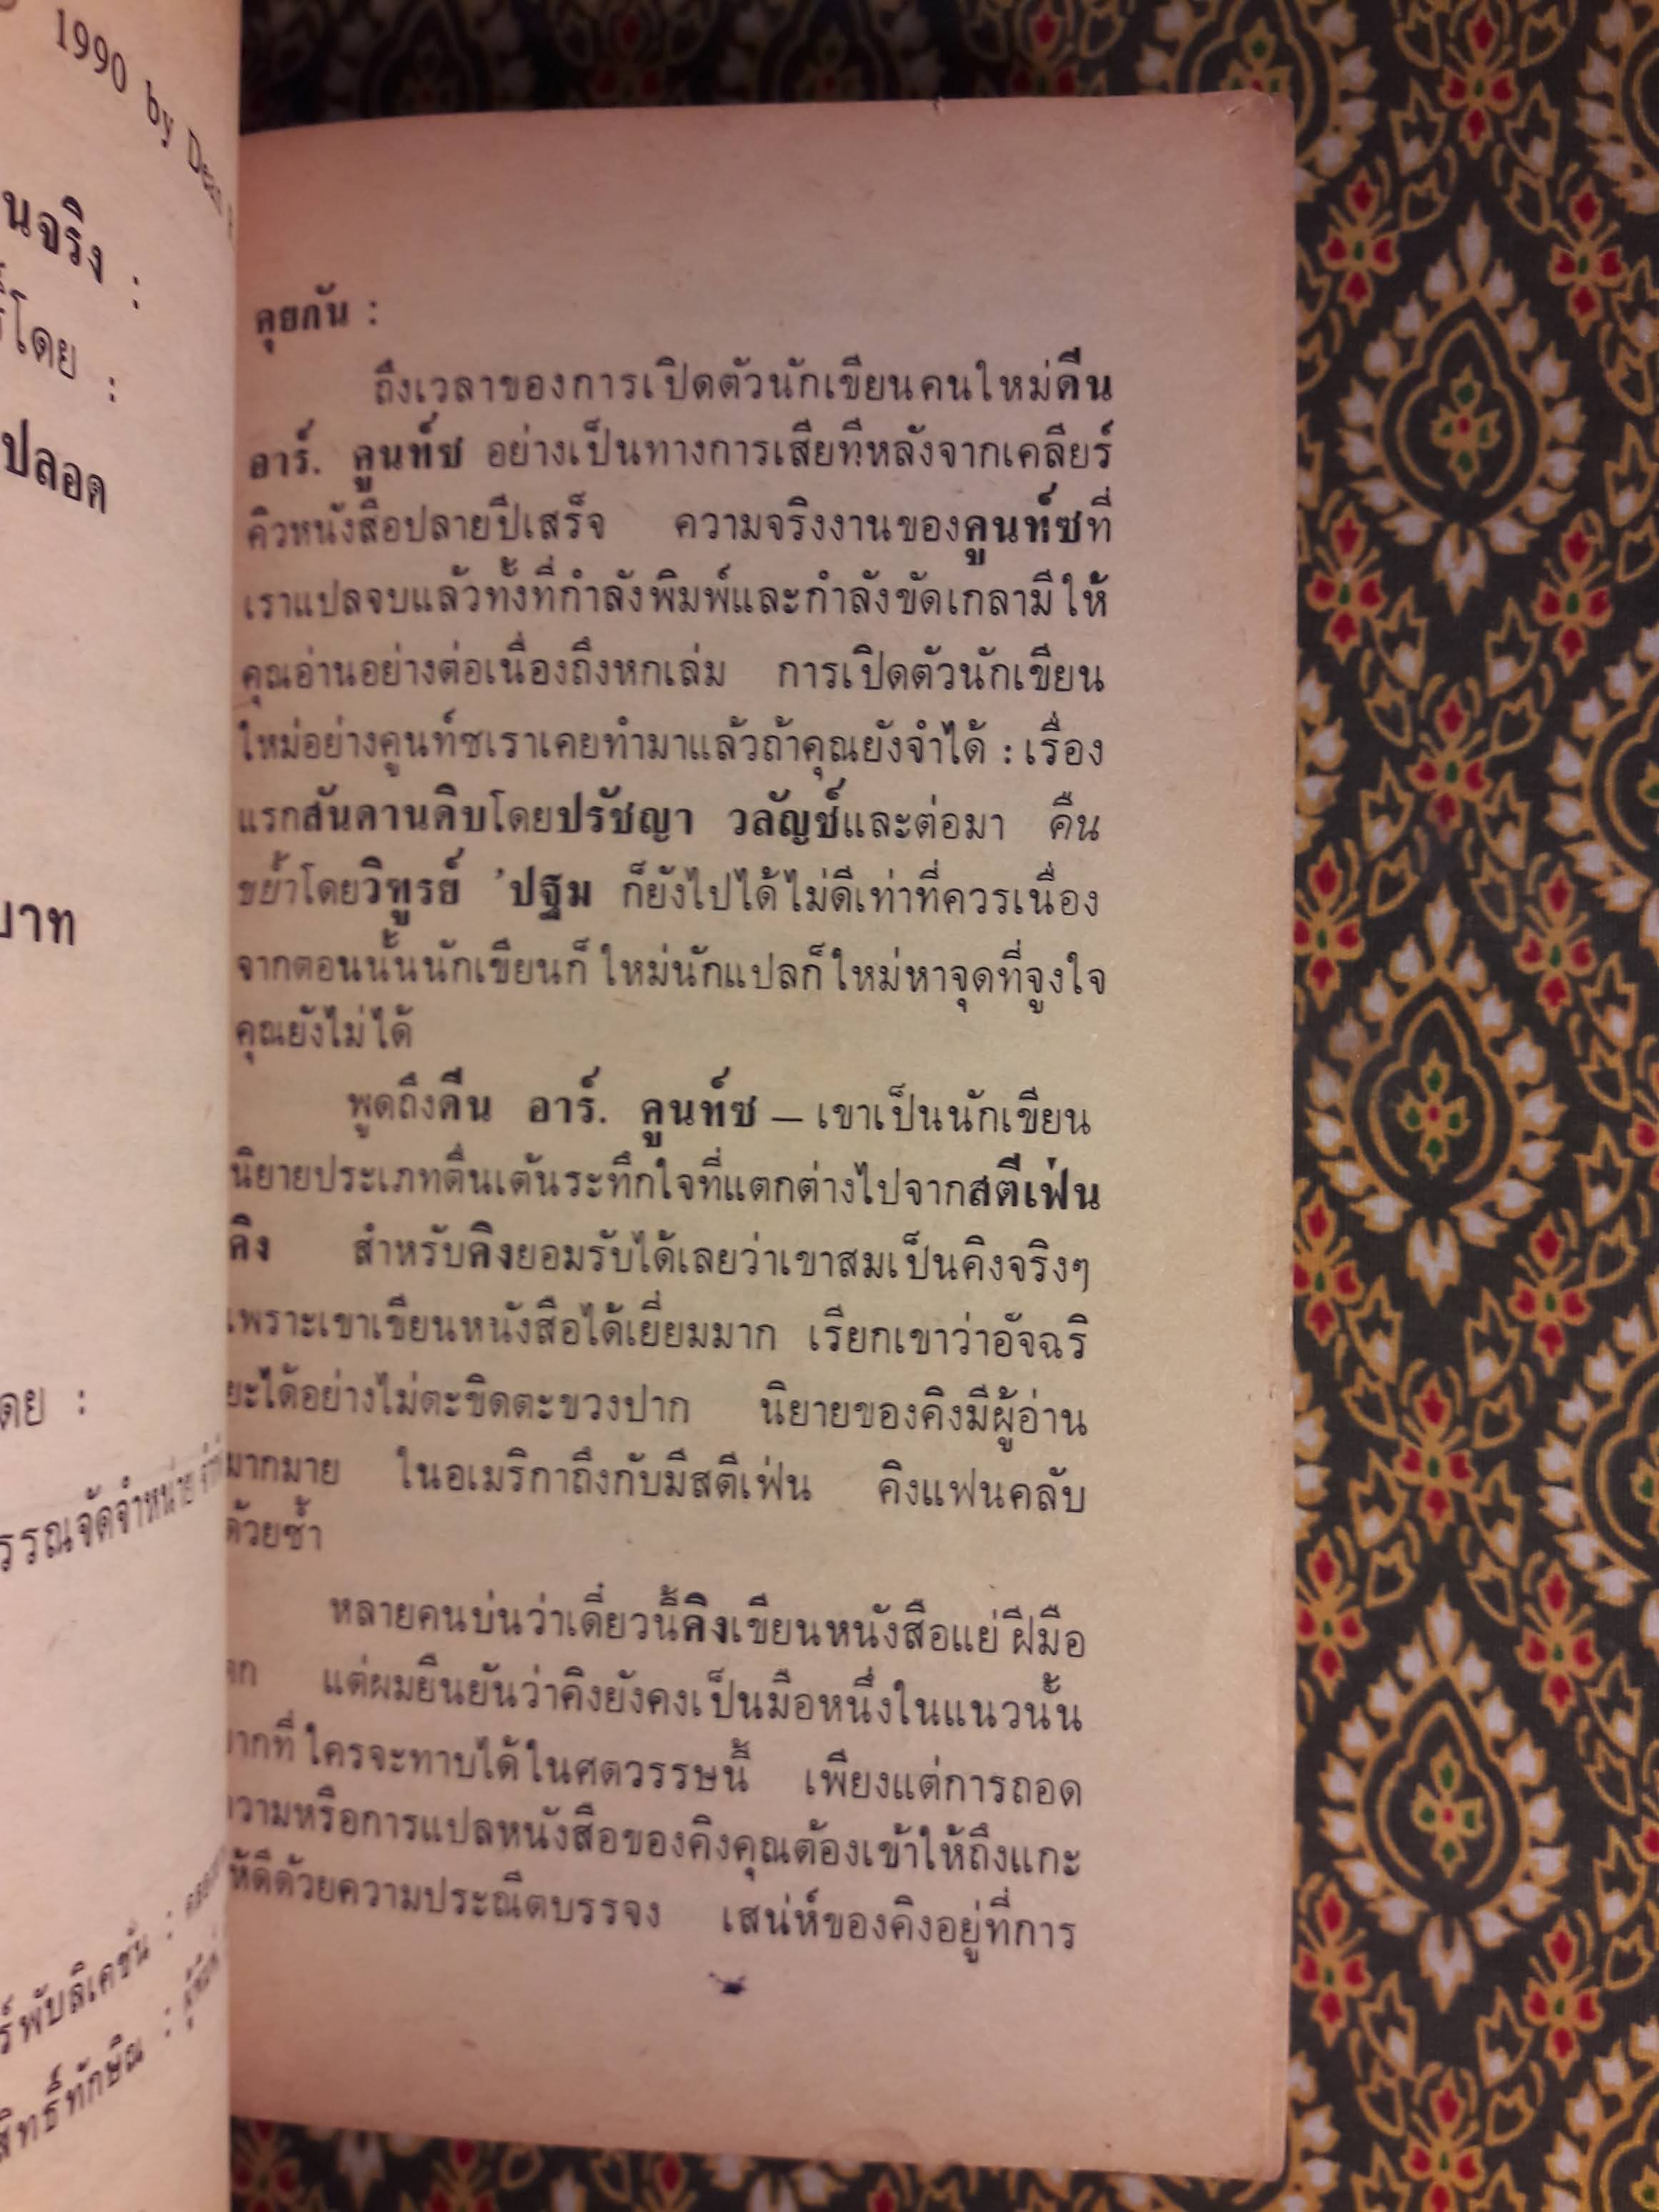 1990 by Dean
นจริง :
โดย :
ปลอด
บาท
ดย :
รรณจัดจำหน่าย
ร์พับลิเคชั่น :
สิทธิ์ทักษิณ :
คุยกัน :
ถึงเวลาของการเปิดตัวนักเขียนคนใหม่ดีน
อาร์. คูนท์ซ อย่างเป็นทางการเสียทีหลังจากเคลียร์
คิวหนังสือปลายปีเสร็จ ความจริงงานของคูนท์ซที่
เราแปลจบแล้วทั้งที่กำลังพิมพ์และกำลังขัดเกลามีให้
คุณอ่านอย่างต่อเนื่องถึงหกเล่ม การเปิดตัวนักเขียน
ใหม่อย่างคูนท์ซเราเคยทำมาแล้วถ้าคุณยังจำได้ : เรื่อง
แรกสันดานดิบโดยปรัชญา วลัญช์และต่อมา คืน
ขย้ำโดยวิทูรย์ ’ปฐม ก็ยังไปได้ไม่ดีเท่าที่ควรเนื่อง
จากตอนนั้นนักเขียนก็ใหม่นักแปลก็ใหม่หาจุดที่จูงใจ
คุณยังไม่ได้
พูดถึงดีน อาร์. คูนท์ซ – เขาเป็นนักเขียน
นิยายประเภทตื่นเต้นระทึกใจที่แตกต่างไปจากสตีเฟ่น
คิง สำหรับคิงยอมรับได้เลยว่าเขาสมเป็นคิงจริงๆ
เพราะเขาเขียนหนังสือได้เยี่ยมมาก เรียกเขาว่าอัจฉริ
ยะได้อย่างไม่ตะขิดตะขวงปาก นิยายของคิงมีผู้อ่าน
มากมาย ในอเมริกาถึงกับมีสตีเฟ่น คิงแฟนคลับ
ด้วยซ้ำ
หลายคนบ่นว่าเดี๋ยวนี้คิงเขียนหนังสือแย่ ฝีมือ
ตก แต่ผมยืนยันว่าคิงยังคงเป็นมือหนึ่งในแนวนั้น
ยากที่ใครจะทาบได้ในศตวรรษนี้ เพียงแต่การถอด
ความหรือการแปลหนังสือของคิงคุณต้องเข้าให้ถึงแกะ
ให้ดีด้วยความประณีตบรรจง เสน่ห์ของคิงอยู่ที่การ